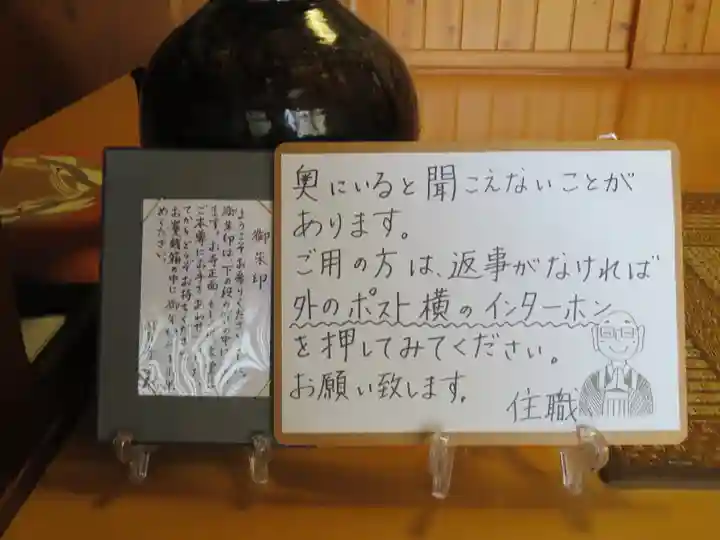 奥にいると聞こえないことが
あります。
ご用の方は、返事がなければ
外のポスト横のインターホン
を押してみてください。
お願い致します。
住職
御朱印
ようこそお参りくださいました
御朱印は、下の段の
ます。お寺正面
ご本尊にお手をあわせ
てからどうぞお持ちくださ
お賽銭箱の中に
めください。